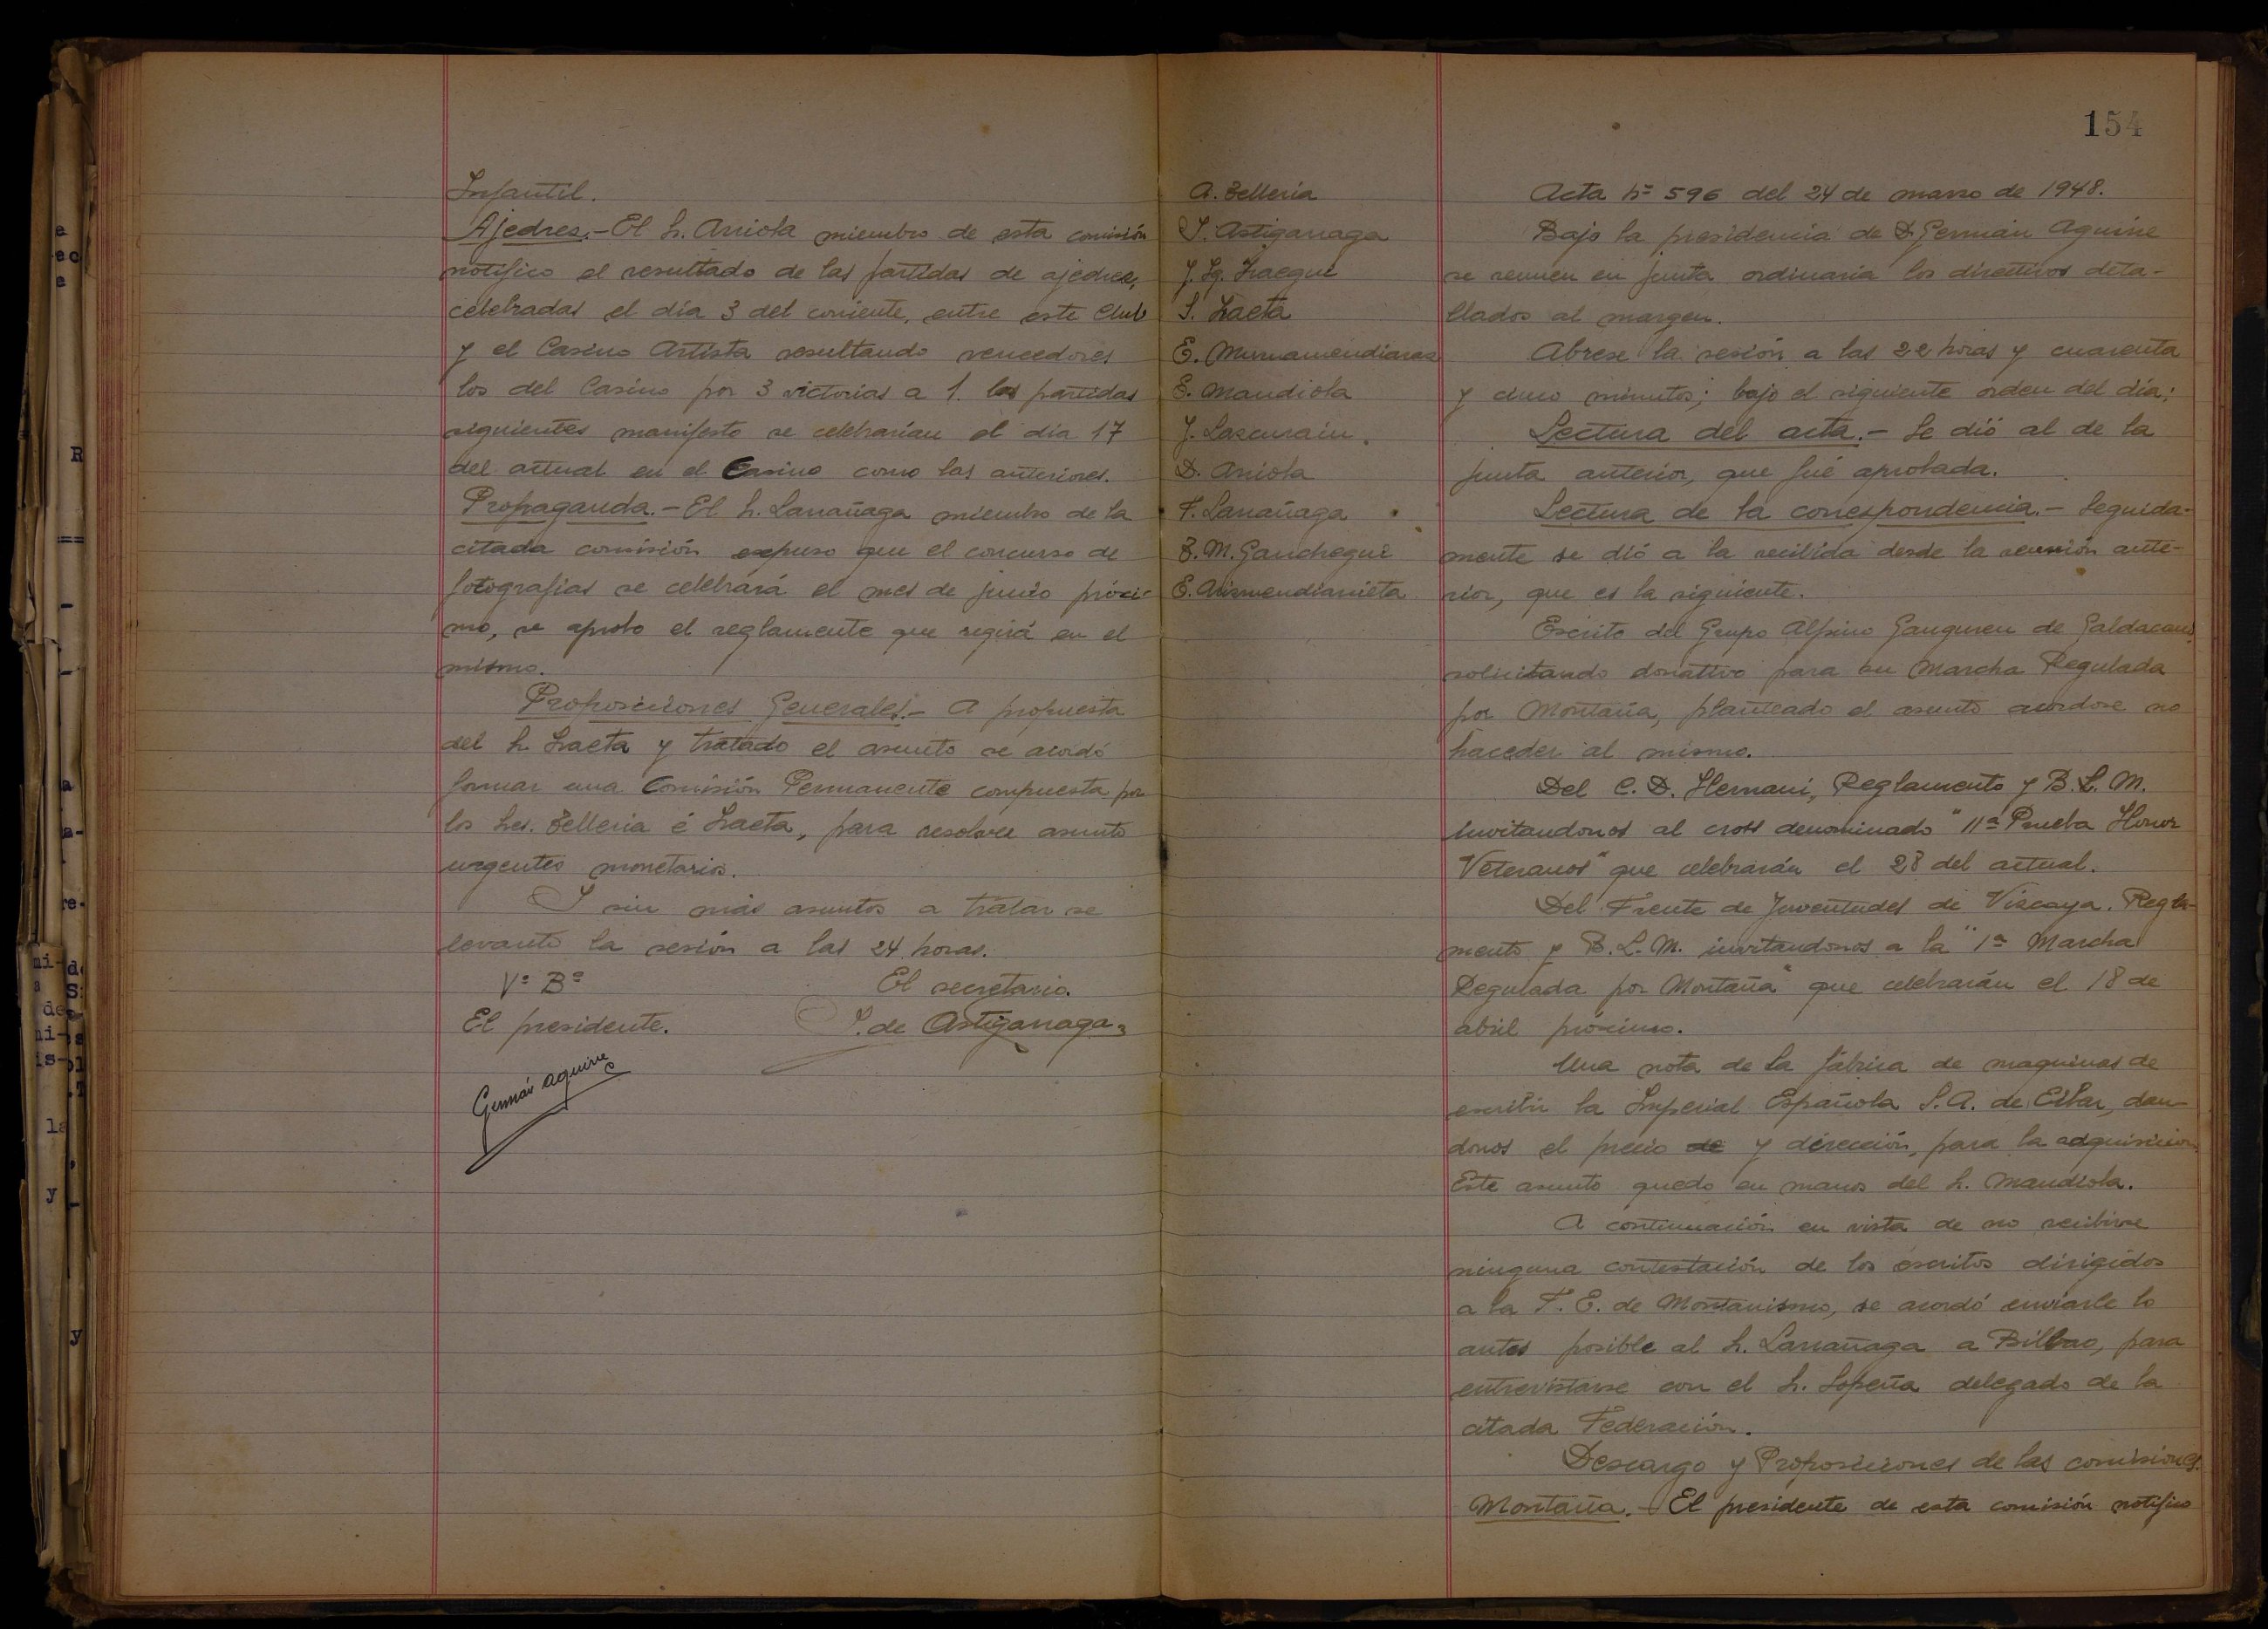 Infantil.
Ajedrez.- El Sr. Arriola miembro de esta comisión
notifico el resultado de las partidas de ajedrez,
celebradas el día 3 del corriente, entre este Club
y el Casino Artista resultando vencedores
los del Casino por 3 victorias a 1. las partidas
siguientes manifesto se celebrarían el día 17
del actual en el Casino como las anteriores.
Propaganda.- El Sr. Larrañaga miembro de la
citada comisión expuso que el concurso de
fotografias se celebrará el mes de junio próxi-
mo, se aprobo el reglamento que regirá en el
mismo.
Proposiciones Generales.- A propuesta
del Sr. Izaeta y tratado el asunto se acordó
formar una Comisión Permanente compuesta por
los Sres. Telleria é Izaeta, para resolver asunto
urgentes monetarios.
Y sin más asuntos a tratar se
levanto la sesión a las 24 horas.
Vº Bº El secretario.
El presidente. I. de Astigarraga
Germán Aguirre
154
A. Telleria
I. Astigarraga
J. Ig. Iraegui
S. Izaeta
E. Murnamendiaraz
E. Mandiola
J. Lascurain.
D. Arriola
F. Larrañaga
B. M. Ganchegui
E. Arizmendiarrieta
Acta nº 596 del 24 de marzo de 1948.
Bajo la presidencia de D. Germán Aguirre
se reunen en junta ordinaria los directivos deta-
llados al margen.
Abrese la sesión a las 22 horas y cuarenta
y cinco minutos; bajo el siguiente orden del día:
Lectura del acta.- Se dió al de la
junta anterior, que fué aprobada.
Lectura de la correspondencia.- Seguida-
mente se dió a la recibida desde la reunión ante-
rior, que es la siguiente.
Escrito del Grupo Alpino Ganguren de Galdacano,
solicitando donativo para su Marcha Regulada
por Montaña, planteado el asunto acordose no
hacceder al mismo.
Del C. D. Hernani, Reglamento y B. L. M.
invitandonos al cross denominado "11ª Prueba Honor
Veteranos" que celebrarán el 28 del actual.
Del Frente de Juventudes de Vizcaya. Regla-
mento y B. L. M. invitandonos a la "1ª Marcha
Regulada por Montaña" que celebrarán el 18 de
abril próximo.
Una nota de la fábrica de maquinas de
escribir la Imperial Española S. A. de Eibar, dan-
donos el precio de y dirección, para la adquisición
Este asunto quedo en manos del Sr. Mandiola.
A continuación en vista de no recibirse
ninguna contestación de los escritos dirigidos
a la F. E. de Montanismo, se acordó enviarle lo
antes posible al Sr. Larrañaga a Bilbao, para
entrevistarse con el Sr. Sopeña delegado de la
citada Federación.
Descargo y Proposiciones de las comisiones.
Montaña.- El presidente de esta comisión notifico